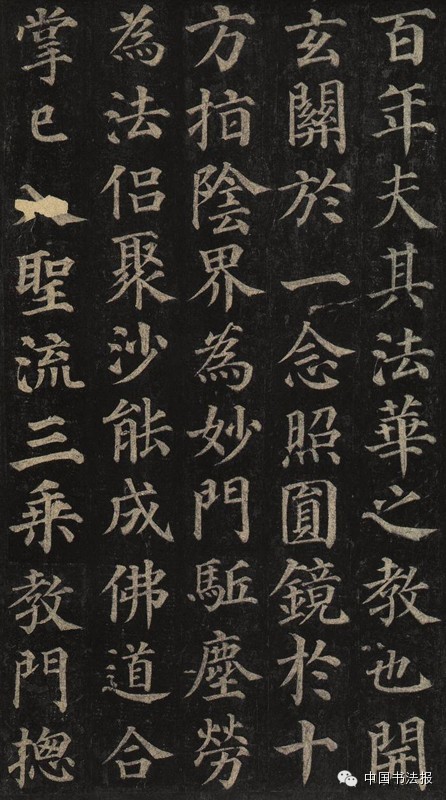 百年夫其法華之教也開
玄關於一念照圓鏡於十
方指陰界為妙門駈塵勞
為法侶聚沙能成佛道合
掌已入聖流三乘教門揔
中国书法报